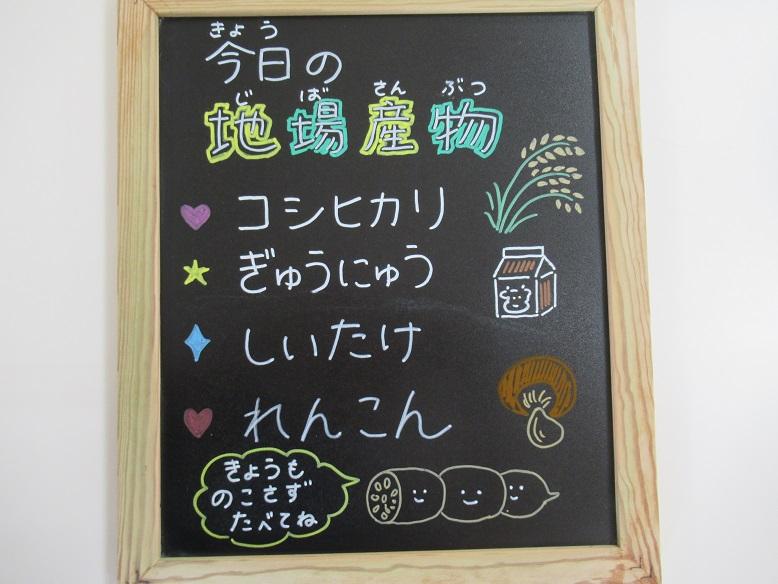 きょう
今日の
じばさんぶつ
地場産物
コシヒカリ
ぎゅうにゅう
しいたけ
れんこん
きょうも
のこさず
たべてね